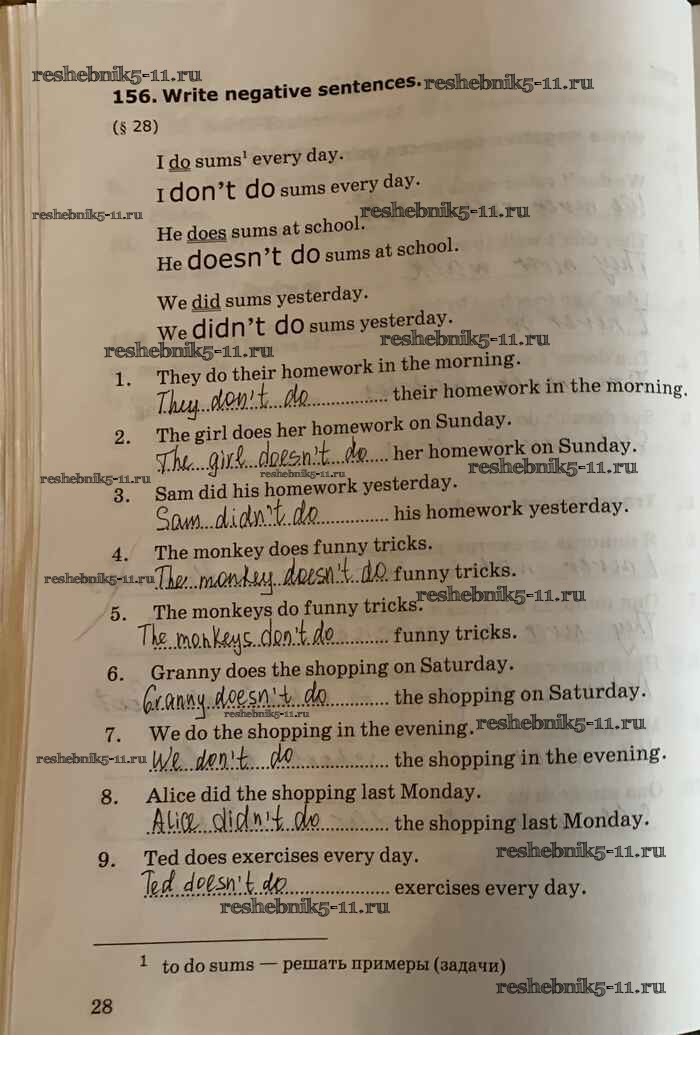 reshebnik5-11.ru
156. Write negative sentences. reshebnik5-11.ru
(§ 28)
I do sums¹ every day.
I don't do sums every day.
reshebnik5-11.ru reshebnik5-11.ru
He does sums at school.
He doesn't do sums at school.
We did sums yesterday.
We didn't do sums yesterday.
reshebnik5-11.ru reshebnik5-11.ru
1. They do their homework in the morning.
They don't do their homework in the morning.
2. The girl does her homework on Sunday.
The girl doesn't do her homework on Sunday.
reshebnik5-11.ru reshebnik5-11.ru reshebnik5-11.ru
3. Sam did his homework yesterday.
Sam didn't do his homework yesterday.
4. The monkey does funny tricks.
reshebnik5-11.ru The monkey doesn't do funny tricks.
reshebnik5-11.ru
5. The monkeys do funny tricks.
The monkeys don't do funny tricks.
6. Granny does the shopping on Saturday.
Granny doesn't do the shopping on Saturday.
reshebnik5-11.ru
7. We do the shopping in the evening. reshebnik5-11.ru
reshebnik5-11.ru We don't do the shopping in the evening.
8. Alice did the shopping last Monday.
Alice didn't do the shopping last Monday.
9. Ted does exercises every day. reshebnik5-11.ru
Ted doesn't do exercises every day.
reshebnik5-11.ru
¹ to do sums — решать примеры (задачи)
reshebnik5-11.ru
28